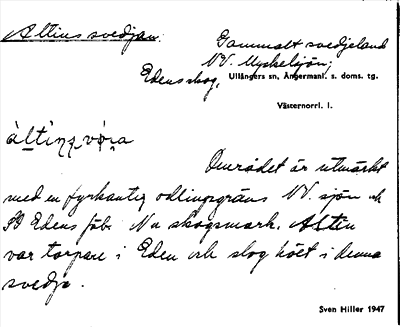 Altins svedjan.
Gammalt svedjeland
NV. Myckelsjön;
Edens skog,
Ullångers sn, Ångermanl. s. doms. tg.
Västernorrl. l.
Området är utmärkt
med en fyrkantig odlingsgräns NV. sjön och
SO Edens fäb. Nu skogsmark. Altin
var torpare i Eden och slog höet i denna
svedja.
Sven Hiller 1947